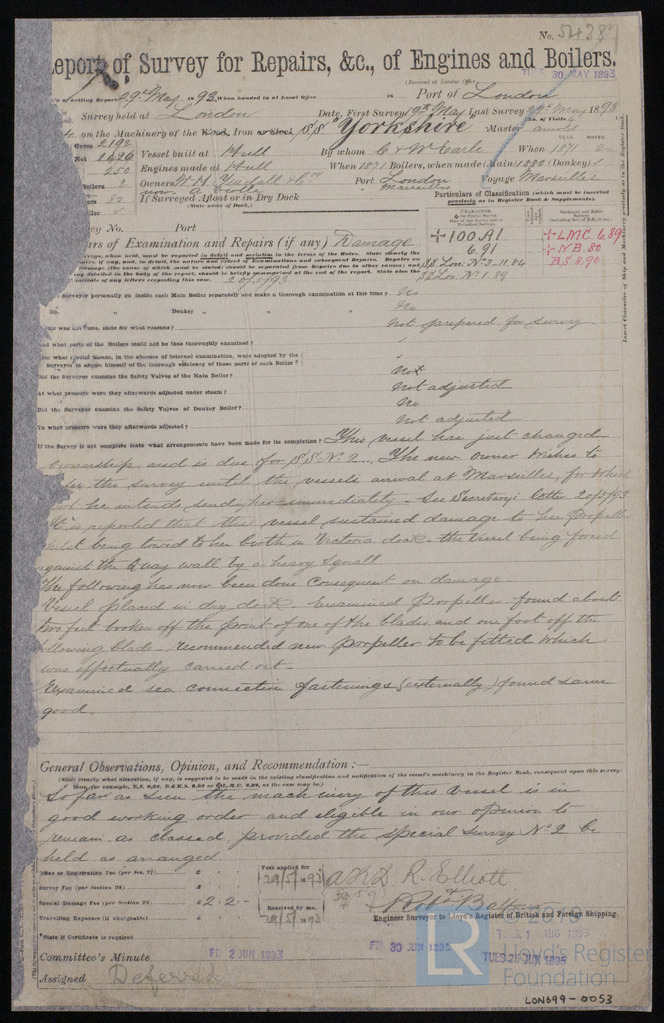 No. 54387
Report of Survey for Repairs, &c., of Engines and Boilers.
TUES 30 MAY 1893
(Received at London Office
of writing Report 29th May 1893 When handed in at Local Office 18 Port of London
Survey held at London Date, First Survey 19th May Last Survey 29th May 1893
on the Machinery of the Iron S/S Yorkshire Master Arnold
Gross 2192
Net 2426 Vessel built at Hull By whom C & W Earle When 1871
250 Engines made at Hull When 1871 Boilers, when made (Main) 1880 (Donkey)
Boilers 2 Owners Port London Voyage Marseilles
Marseilles
80 If Surveyed Afloat or in Dry Dock
(State name of Dock.)
Particulars of Classification (which must be inserted
precisely as in Register Book & Supplements).
Survey No. Port
+100A1
6.91
SS Lon: No. 3-11.84
SS Lon: No. 1.89
+LMC 6.89
+NB.80
BS 8.90
of Examination and Repairs (if any) Damage
20/5/93
Surveyor personally go inside each Main Boiler separately and make a thorough examination at this time? No
Do. " Donkey " " " No
this was not done, state for what reasons? Not prepared for survey
And what parts of the Boilers could not be thus thoroughly examined? "
what special means, in the absence of internal examination, were adopted by the
Surveyor to assure himself of the thorough efficiency of those parts of each Boiler? "
Did the Surveyor examine the Safety Valves of the Main Boiler? Not
At what pressure were they afterwards adjusted under steam? Not adjusted
Did the Surveyor examine the Safety Valves of Donkey Boiler? No
To what pressure were they afterwards adjusted? Not adjusted
If the Survey is not complete state what arrangements have been made for its completion? This vessel has just changed
ownership and is due for S.S. No 2. The new owner wishes to
the survey until the vessels arrival at Marseilles, for which
he intends sending her immediately - See Secretary's letter 20/5/93
It is reported that the vessel sustained damage to her propeller
whilst being towed to her berth in Victoria dock - the vessel being forced
against the Quay wall by a heavy squall.
The following has now been done Consequent on damage
Vessel placed in dry dock - Examined Propeller - found about
two feet broken off the point of one of the blades and one foot off the
following blade - recommended new propeller to be fitted which
was effectually carried out -
Examined sea connection fastenings (externally) found same
good.
General Observations, Opinion, and Recommendation :—
(State clearly what alteration, if any, is suggested to be made in the existing classification and notification of the vessel's machinery in the Register Book, consequent upon this survey:
So far as seen the machinery of this Vessel is in
good working order and eligible in our opinion to
remain as classed provided the special Survey No 2 be
held as arranged
Office or Registration Fee (per Sec. 27) £ : :
Fees applied for
29/5/1893
Survey Fee (per Section 28) £ : :
Special Damage Fee (per Section 28) £ 2 : 2 : -
Received by me,
29/5/1893
Travelling Expenses (if chargeable) £ : :
R. Elliott
Robt Balfour
Engineer Surveyor to Lloyd's Register of British and Foreign Shipping.
*State if Certificate is required
TUES. 1 AUG 1893
Committee's Minute FRI 2 JUN 1893 FRI 30 JUN 1893 TUES 25 JUN 1895
Assigned Deferred
LR
© 2019
Lloyd's Register
Foundation
LON699-0053